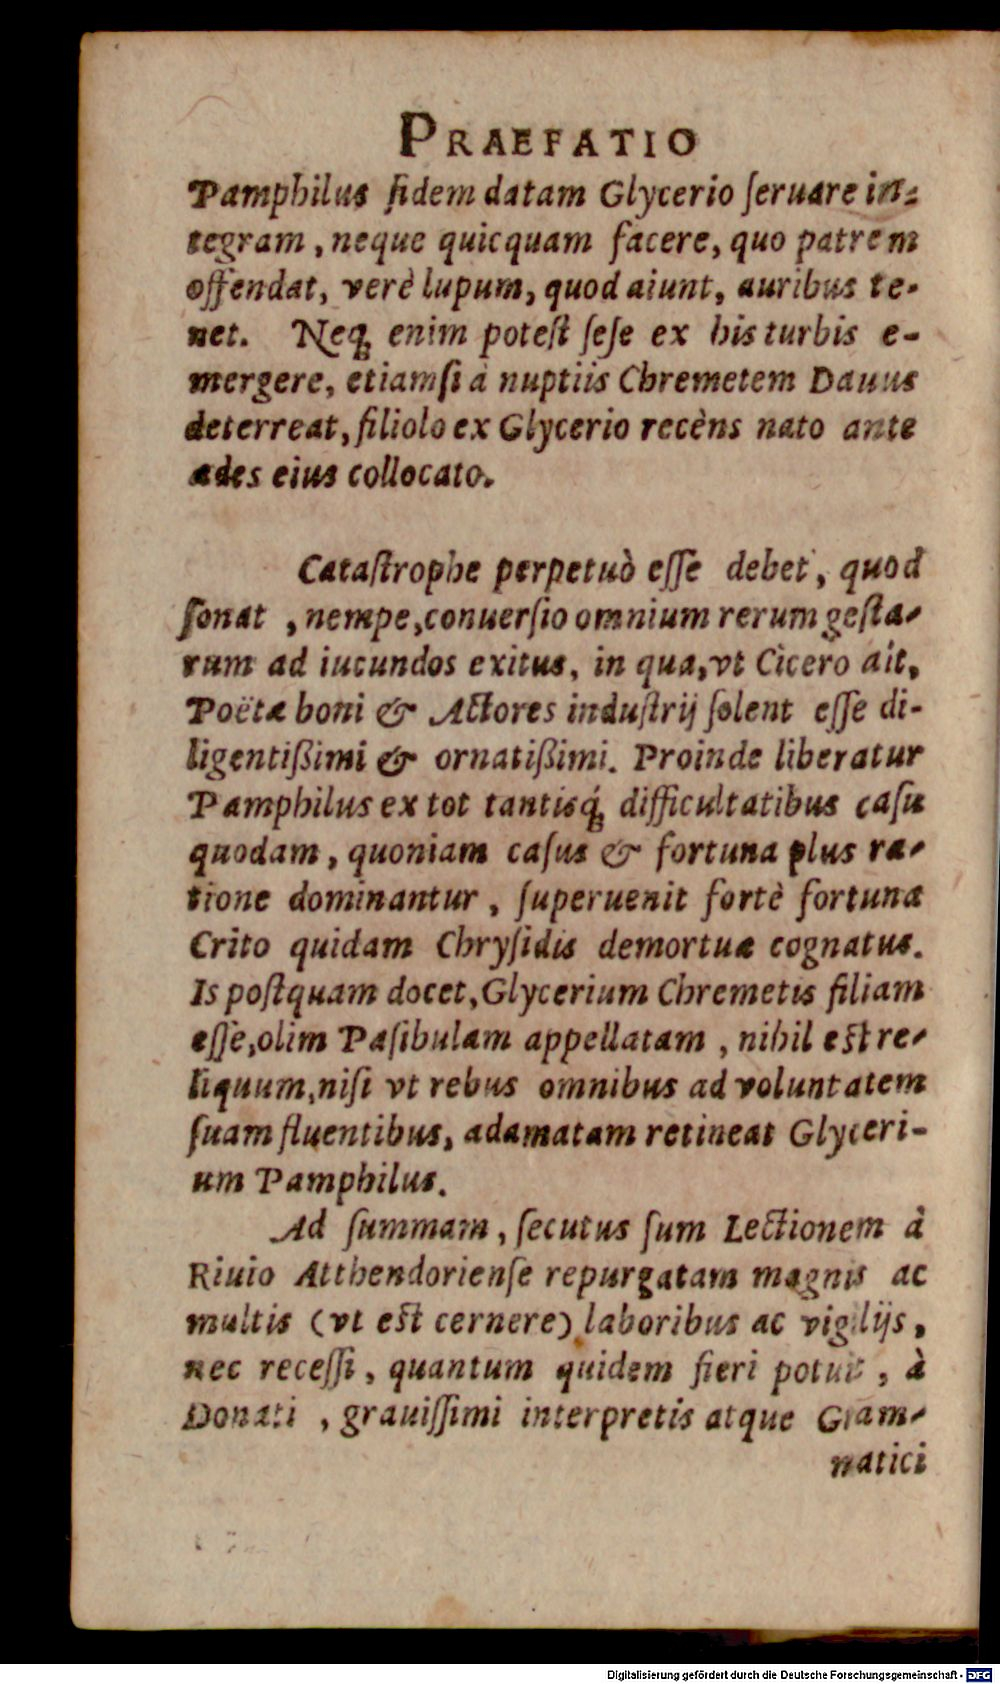 PRAEFATIO
Pamphilus fidem datam Glycerio ſeruare in-
tegram, neque quicquam facere, quo patrem
offendat, verè lupum, quod aiunt, auribus te-
net. Neqꝫ enim poteſt ſeſe ex his turbis e-
mergere, etiamſi à nuptiis Chremetem Dauus
deterreat, filiolo ex Glycerio recèns nato ante
ædes eius collocato.
Cataſtrophe perpetuò eſſe debet, quod
ſonat, nempe, conuerſio omnium rerum geſta-
rum ad iucundos exitus, in qua, vt Cicero ait,
Poëtæ boni & Actores induſtrij ſolent eſſe di-
ligentißimi & ornatißimi. Proinde liberatur
Pamphilus ex tot tantisq́ꝫ difficultatibus caſu
quodam, quoniam caſus & fortuna plus ra-
tione dominantur, ſuperuenit fortè fortuna
Crito quidam Chryſidis demortuæ cognatus.
Is poſtquam docet, Glycerium Chremetis filiam
eſſe, olim Paſibulam appellatam, nihil eſt re-
liquum, niſi vt rebus omnibus ad voluntatem
ſuam fluentibus, adamatam retineat Glyceri-
um Pamphilus.
Ad ſummam, ſecutus ſum Lectionem à
Riuio Atthendorienſe repurgatam magnis ac
multis (vt eſt cernere) laboribus ac vigilijs,
nec receſſi, quantum quidem fieri potuit, à
Donati, grauiſſimi interpretis atque Gram-
matici
Digitalisierung gefördert durch die Deutsche Forschungsgemeinschaft - DFG